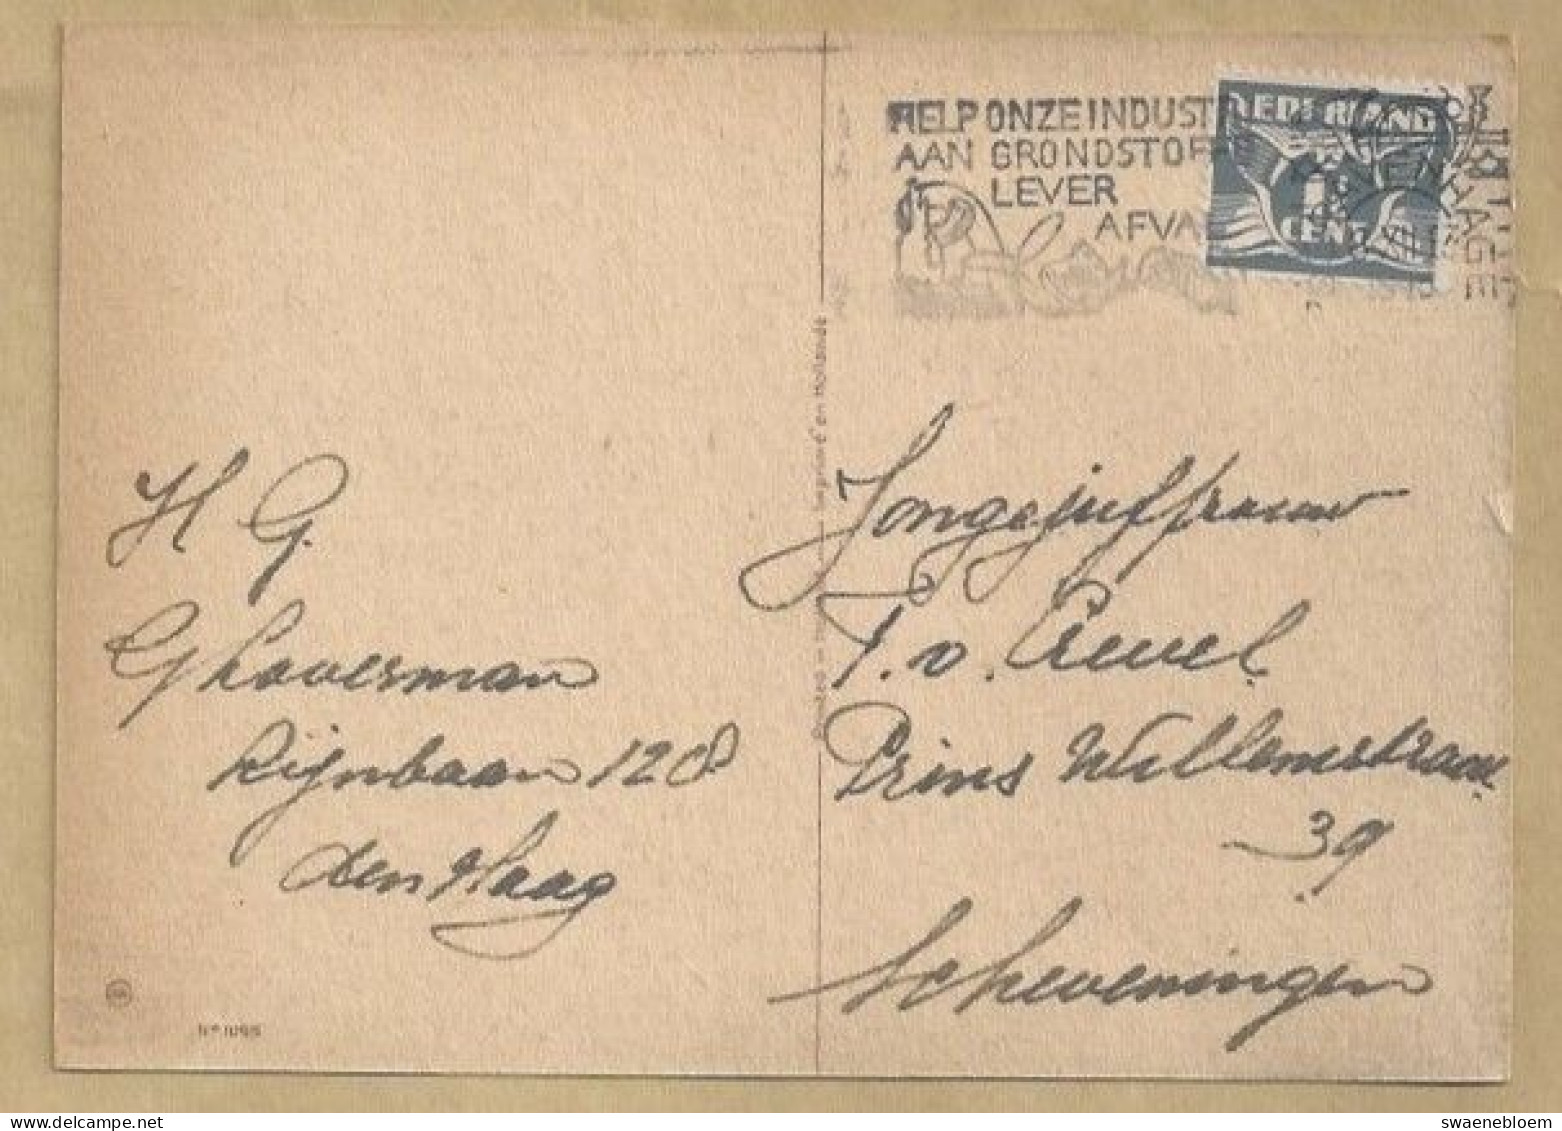 HELP ONZE INDUST
AAN GRONDSTOF
LEVER
AFVA
NEDERLAND
CENT
H G.
Ghoverman
Rijnbaan 128
den Haag
Jongejuffrouw
T. v. Creuel.
Prins Willemstraat
39
Scheveningen
No 1095
swaenebloem